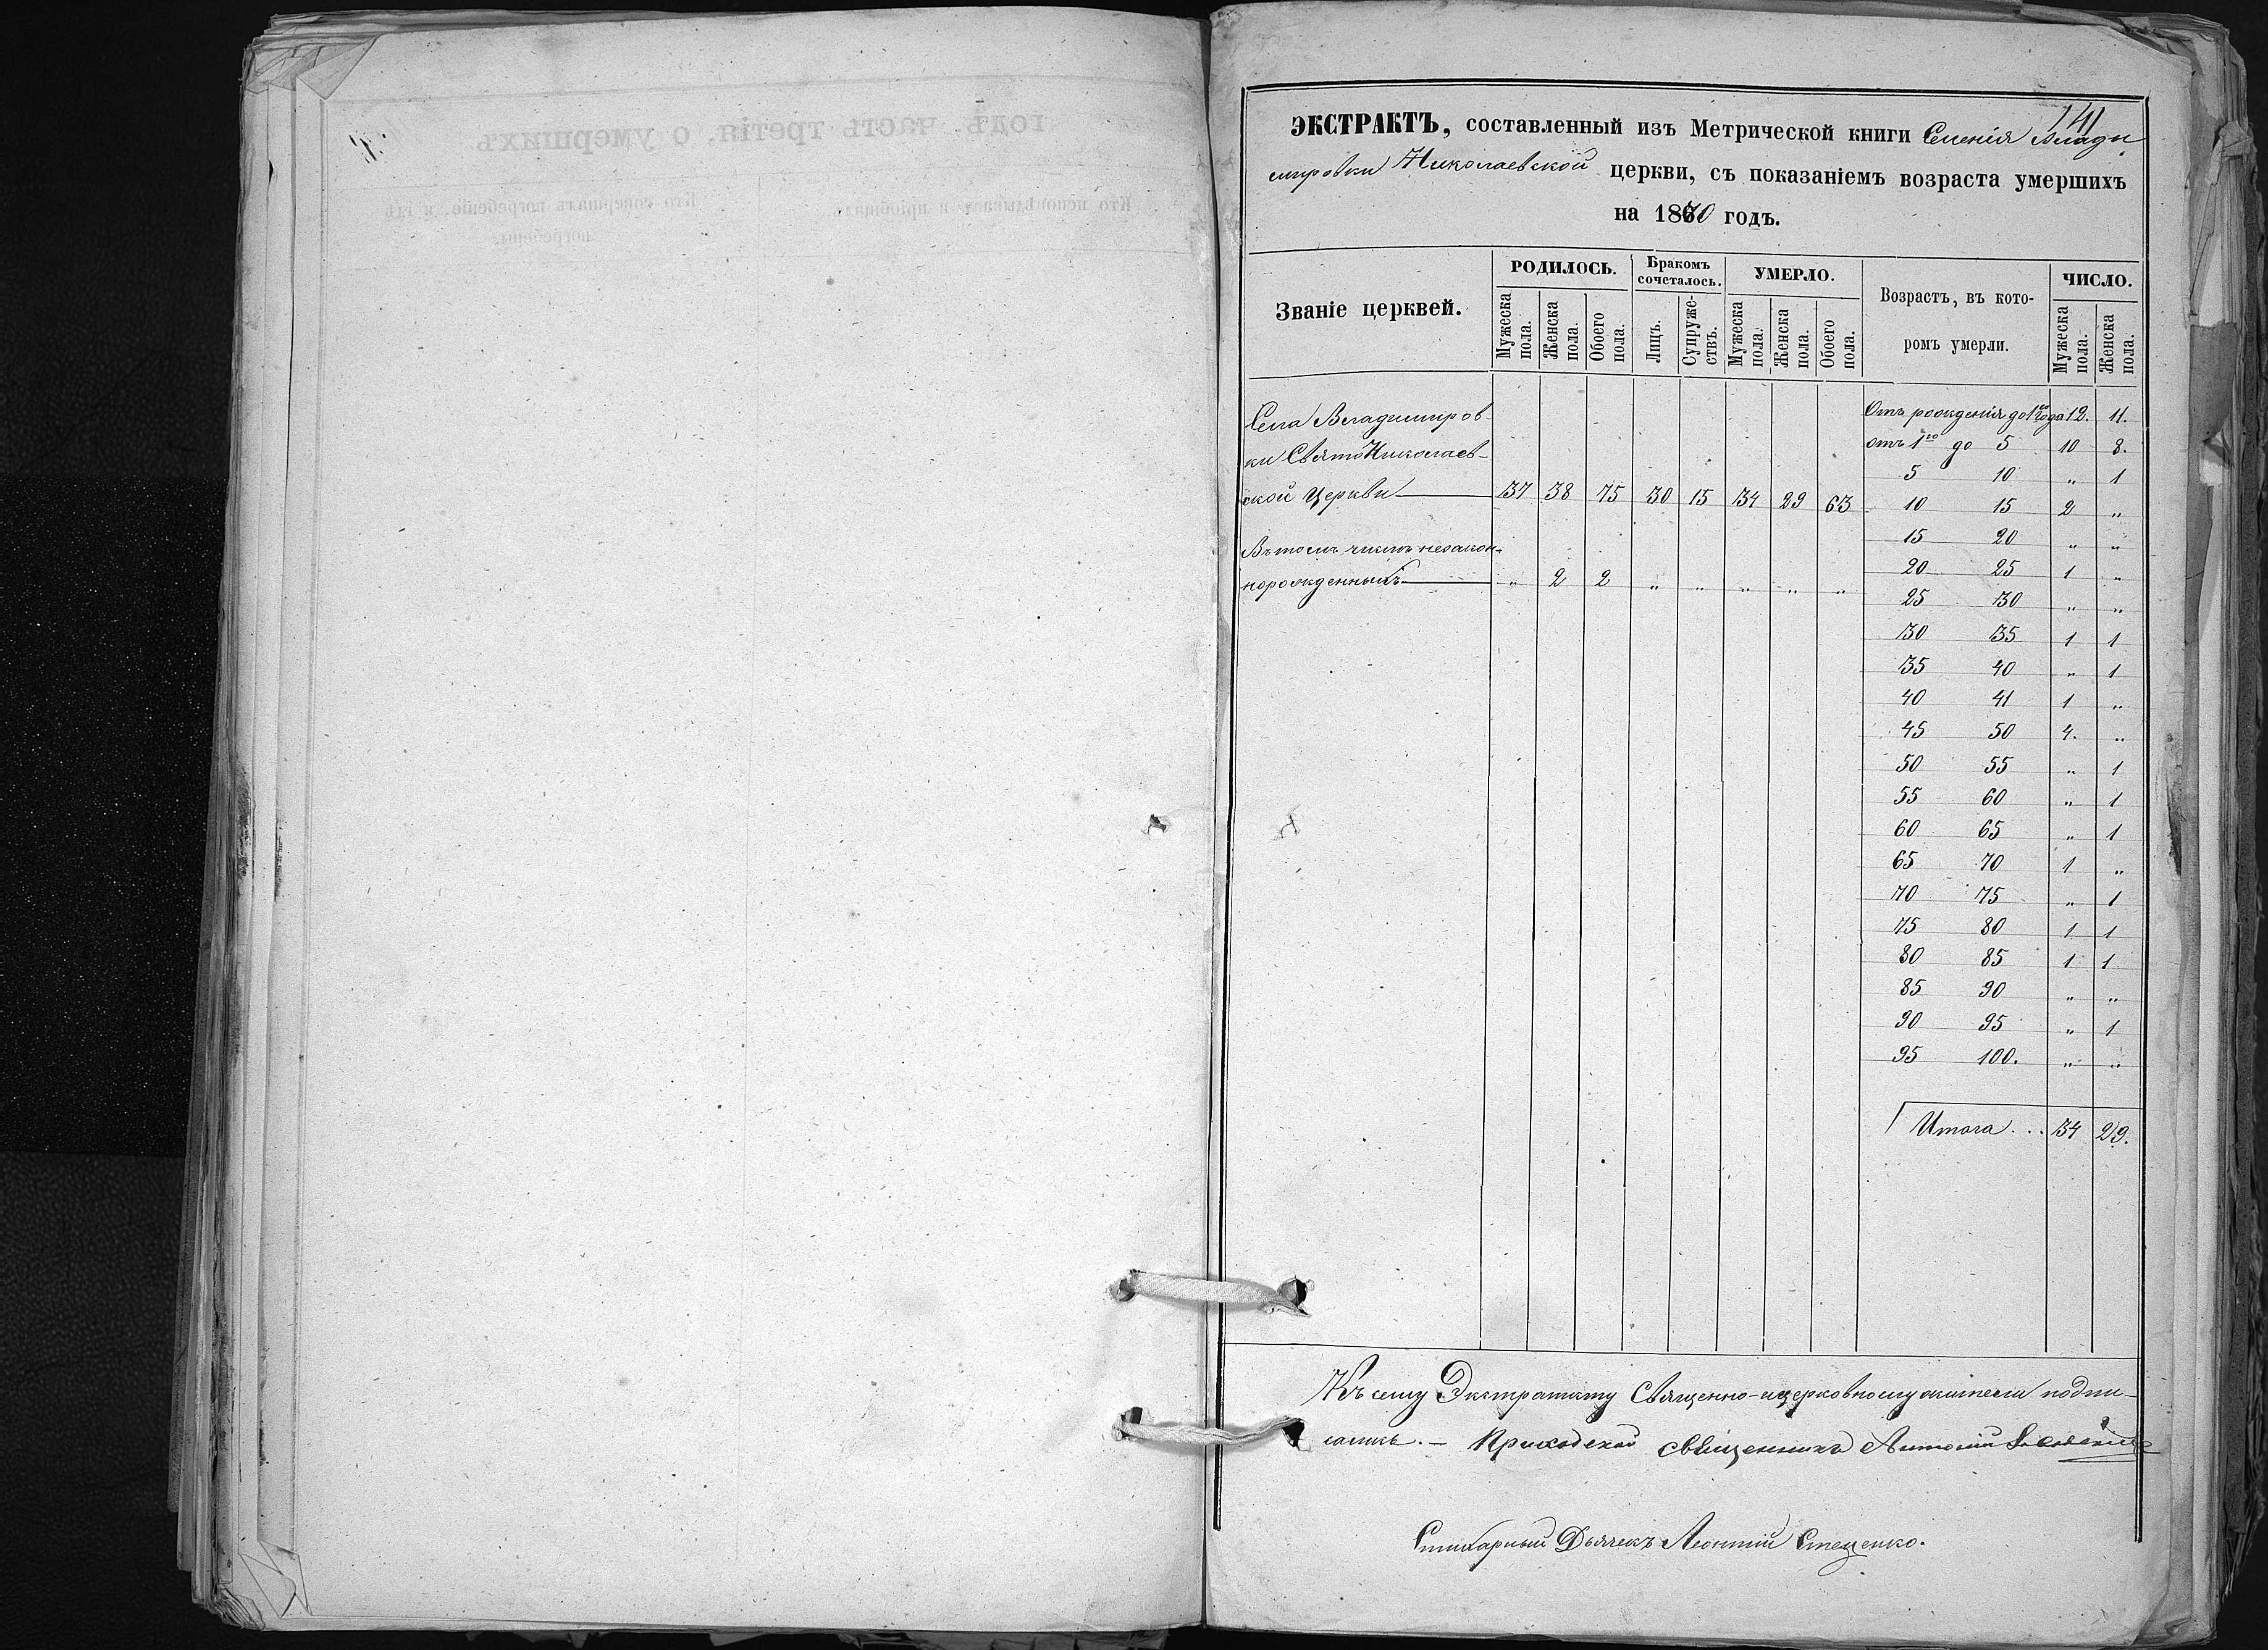 141
ЭКСТРАКТЪ, составленный изъ Метрической книги Селенія Влади
мировки Николаевской церкви, съ показаніемъ возраста умершихъ
на 1870 годъ.
Званіе церквей. РОДИЛОСЬ. Бракомъ сочеталось. УМЕРЛО. Возрастъ, въ кото- ромъ умерли. ЧИСЛО.
Мужеска пола. Женска пола. Обоего пола. Лицъ. Супруже- ствъ. Мужеска пола. Женска пола. Обоего пола. Мужеска пола. Женска пола.
Села Владимиров-
ки СвятоНиколаев-
ской Церкви 37 38 75 30 15 34 29 63
Въ томъ числѣ незакон-
норожденныхъ „ 2 2 „ „ „ „ „
Отъ рожденія до 1го года 12. 11.
отъ 1го до 5 10 8.
5 10 „ 1
10 15 2 „
15 20 „ „
20 25 1 „
25 30 „ „
30 35 1 1
35 40 „ 1
40 41 1 „
45 50 4. „
50 55 „ 1
55 60 „ 1
60 65 „ 1
65 70 1 „
70 75 „ 1
75 80 1 1
80 85 1 1
85 90 „ „
90 95 „ 1
95 100. „ „
Итого ... 34 29.
Къ сему Экстракту Священно-и церковнослужители подпи-
сались. — Приходской священникъ Антоній
Стихарный Дьячекъ Леонтій Стеценко.
годъ, часть третія, о умершихъ
Кто исповѣдывалъ и пріобщалъ. Кто совершалъ погребеніе, и гдѣ
погребены.